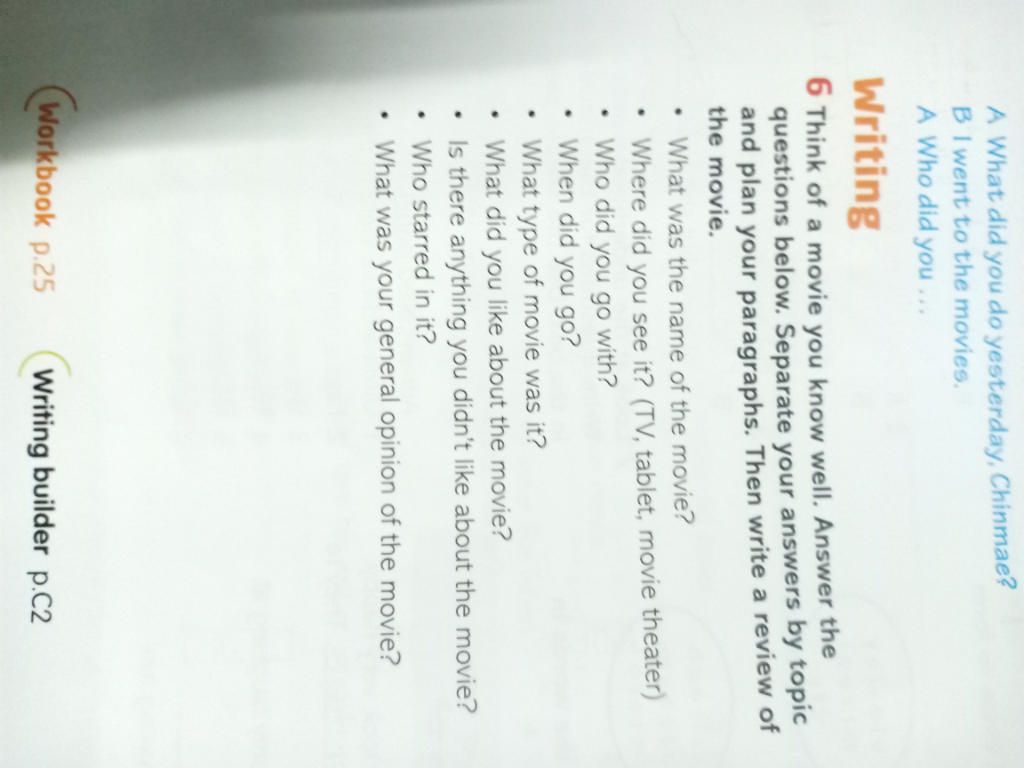 A What did you do yesterday, Chinmae?
B I went to the movies.
A Who did you ...
Writing
6 Think of a movie you know well. Answer the
questions below. Separate your answers by topic
and plan your paragraphs. Then write a review of
the movie.
• What was the name of the movie?
• Where did you see it? (TV, tablet, movie theater)
• Who did you go with?
• When did you go?
• What type of movie was it?
• What did you like about the movie?
• Is there anything you didn't like about the movie?
• Who starred in it?
• What was your general opinion of the movie?
Workbook p.25 Writing builder p.C2